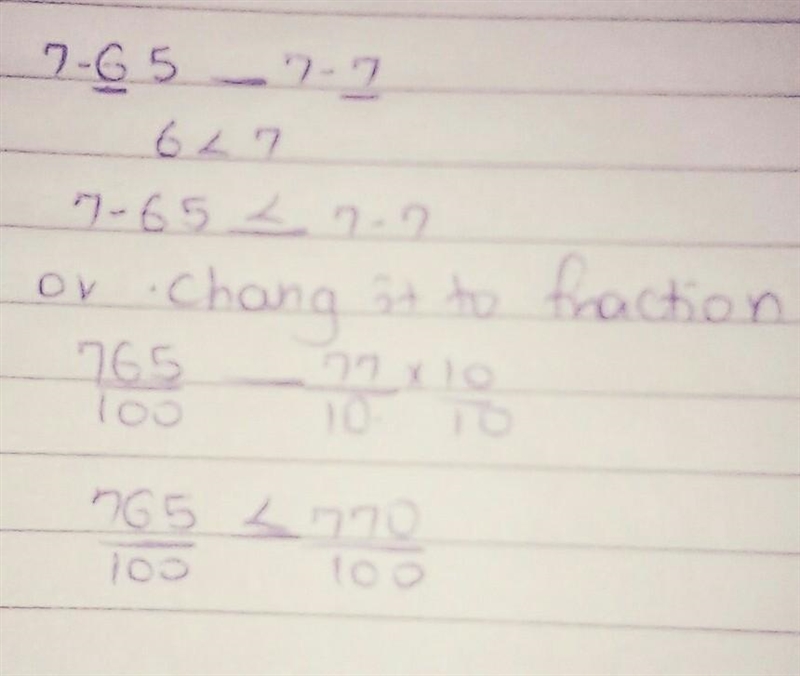 7-65 _ 7-7
6 < 7
7-65 < 7-7
or . Chang it to fraction
765/100 _ 77/10 × 10/10
765/100 < 770/100